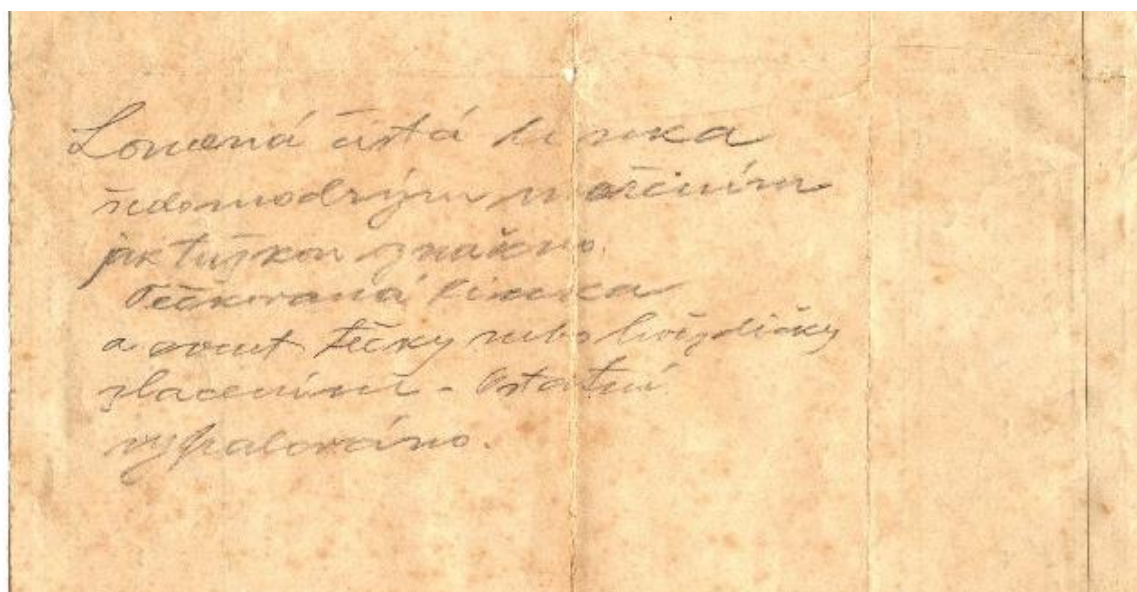 Lomená čistá linka
šedomodrým mořením
jak tužkou značeno.
Tečkovaná linka
a event tečky nebo hvězdičky
zlacením - Ostatní
vypalováno.